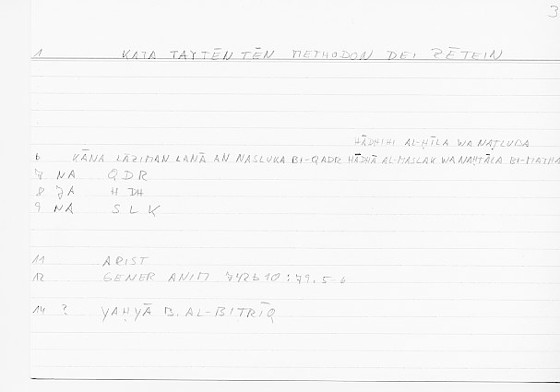 3
1 KATA TAYTĒN TĒN METHODON DEI ZĒTEIN
HĀDHIHI AL-ḤĪLA WA NAṬLUBA
6 KĀNA LĀZIMAN LANĀ AN NASLUKA BI-QADR HĀDHĀ AL-MASLAK WA NAḤTĀLA BI-MATHA
7 NA QDR
8 JA H DH
9 NA SLK
11 ARIST
12 GENER ANIM 742b10 : 79.5-6
14 ? YAḤYĀ B. AL-BITRĪQ